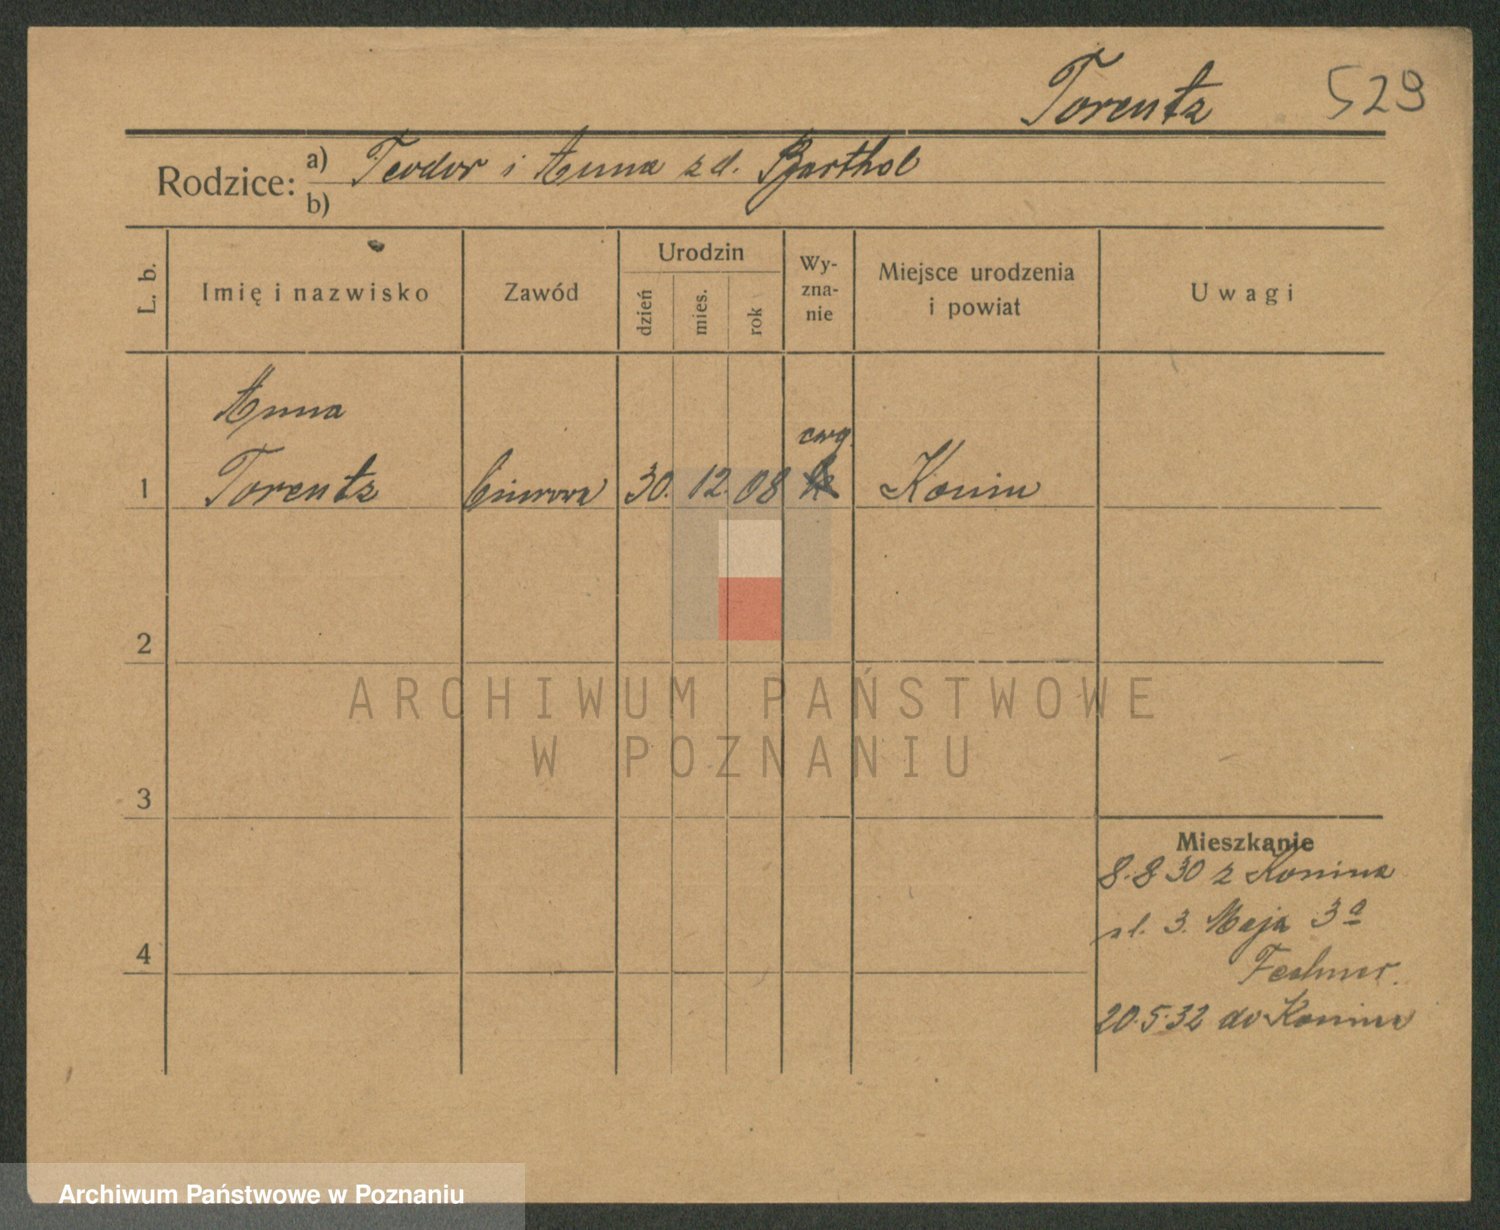 Torentz 529
Rodzice: a) Teodor i Anna z d. Barthol
b)
L. b. Imię i nazwisko Zawód Urodzin dzień mies. rok Wy-zna-nie Miejsce urodzenia i powiat Uwagi
Anna
ewg.
1 Torentz biurowa 30. 12. 08 k Konin
2
ARCHIWUM PAŃSTWOWE
W POZNANIU
3
Mieszkanie
8.8 30 z Konina
ul. 3. Maja 3a
4
Fechner.
20.5.32 do Konina
Archiwum Państwowe w Poznaniu